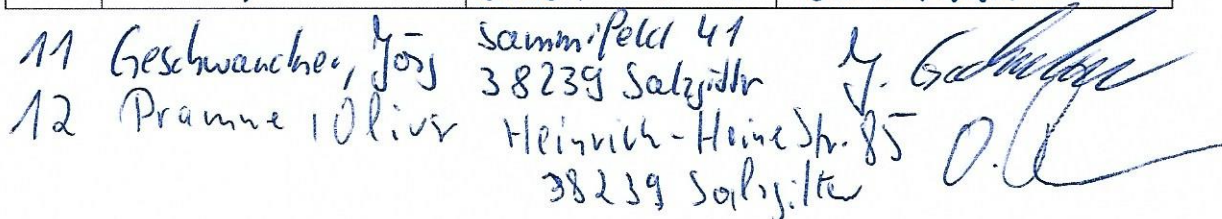 11 Geschwandner, Jörg Sammifeld 41
38239 Salzgitter J.
12 Pramme, Oliver Heinrich-Heine Str. 85 O.
38239 Salzgitter